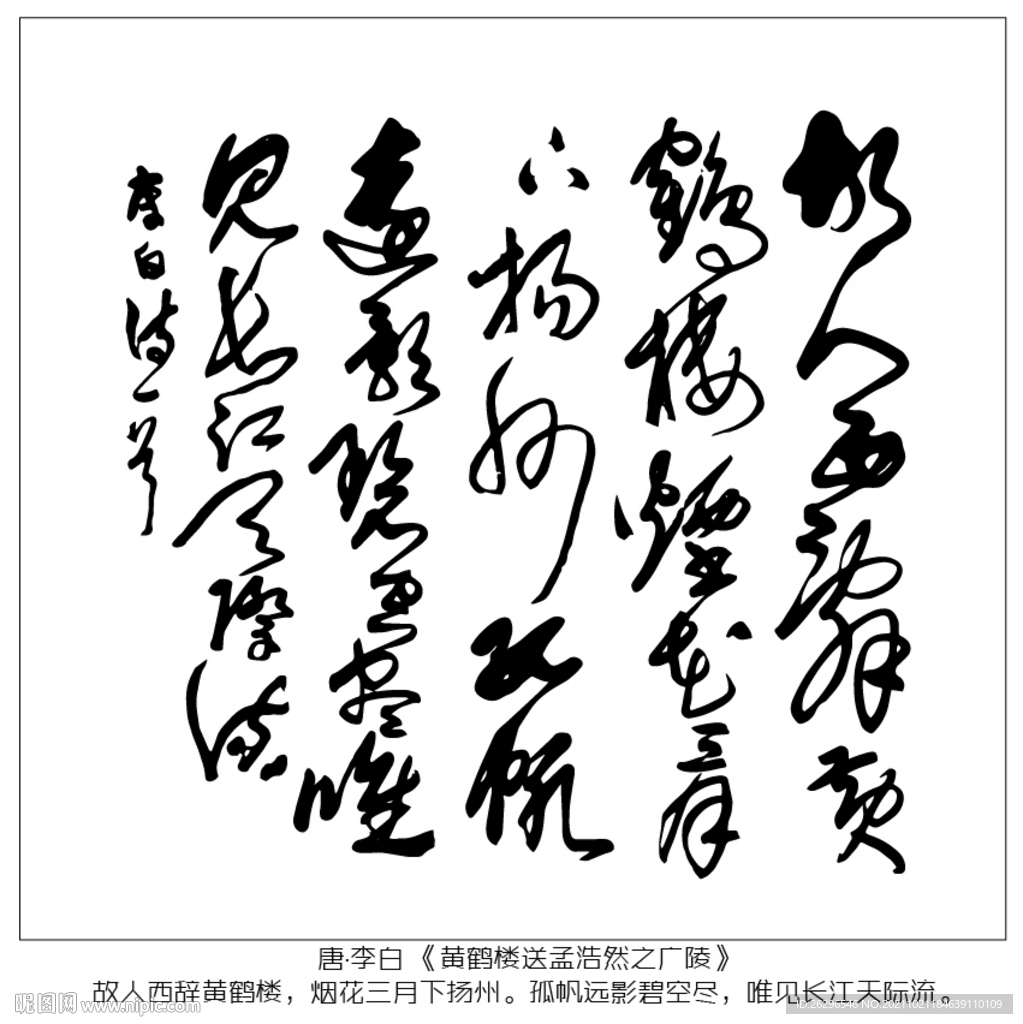 故人西辞黄
鹤楼烟花三月
下扬州孤帆
远影碧空尽唯
见长江天际流
李白诗一首
唐·李白《黄鹤楼送孟浩然之广陵》
故人西辞黄鹤楼，烟花三月下扬州。孤帆远影碧空尽，唯见长江天际流。
昵图网 www.nipic.com
ID:26296546 NO:20211021184639110109